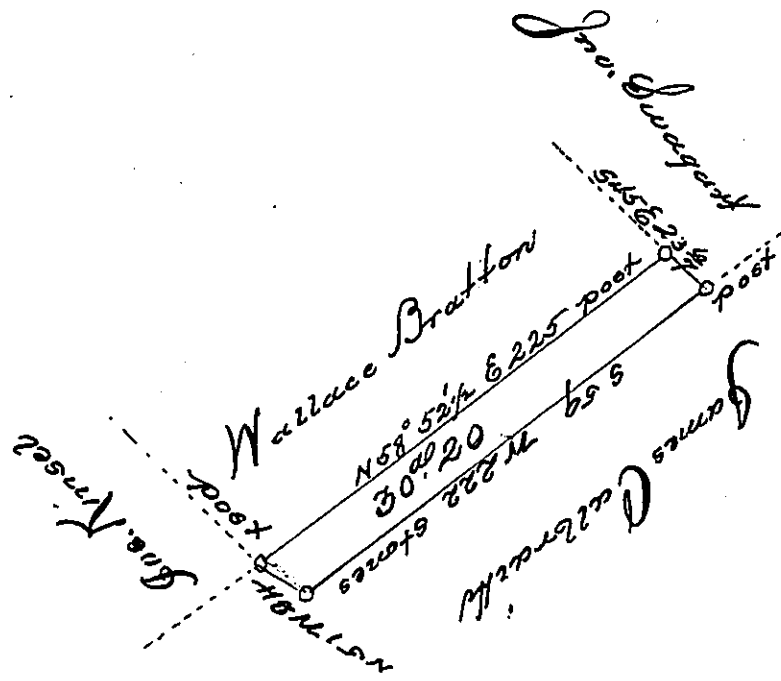 Jno. Swagart
S 45 E 23 ½
post
Wallace Bratton
N 58° 52½' E 225 post
30 a 020
S 59 W 222 stones
James Calbraith
post
Jno. Kinsel
N 51 W